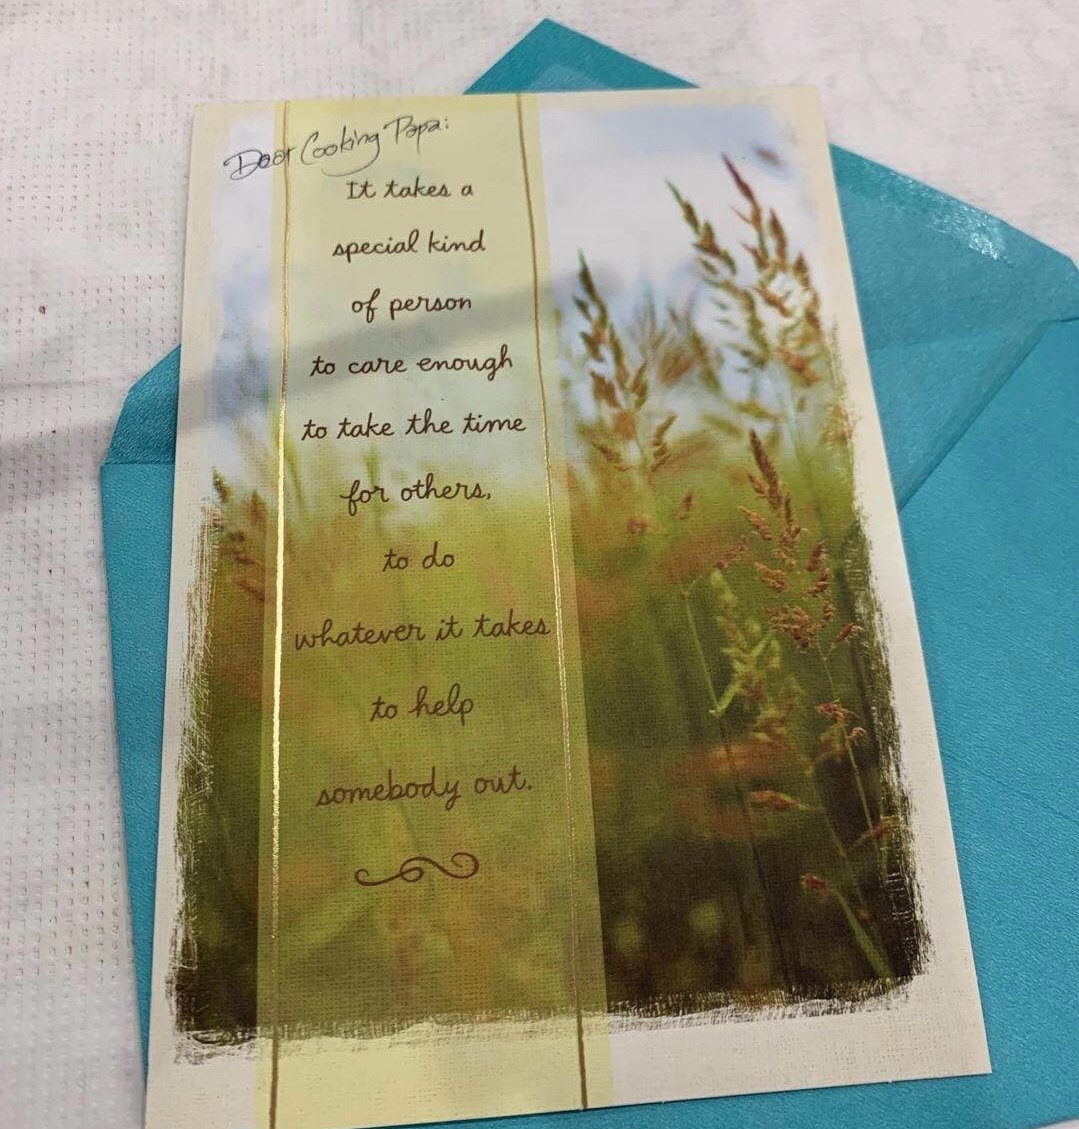 Dear Cooking Papa:
It takes a
special kind
of person
to care enough
to take the time
for others,
to do
whatever it takes
to help
somebody out.